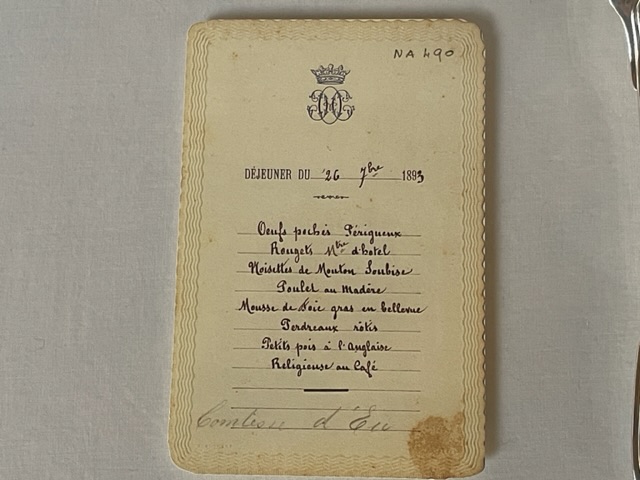 NA 490
DÉJEUNER DU 26 7bre 1893
Oeufs pochés Périgueux
Rougets Mtre d'hotel
Noisettes de Mouton Soubise
Poulet au Madère
Mousse de Foie gras en bellevue
Perdreaux rôtis
Petits pois à l'Anglaise
Religieuse au Café
Comtesse d'Eu